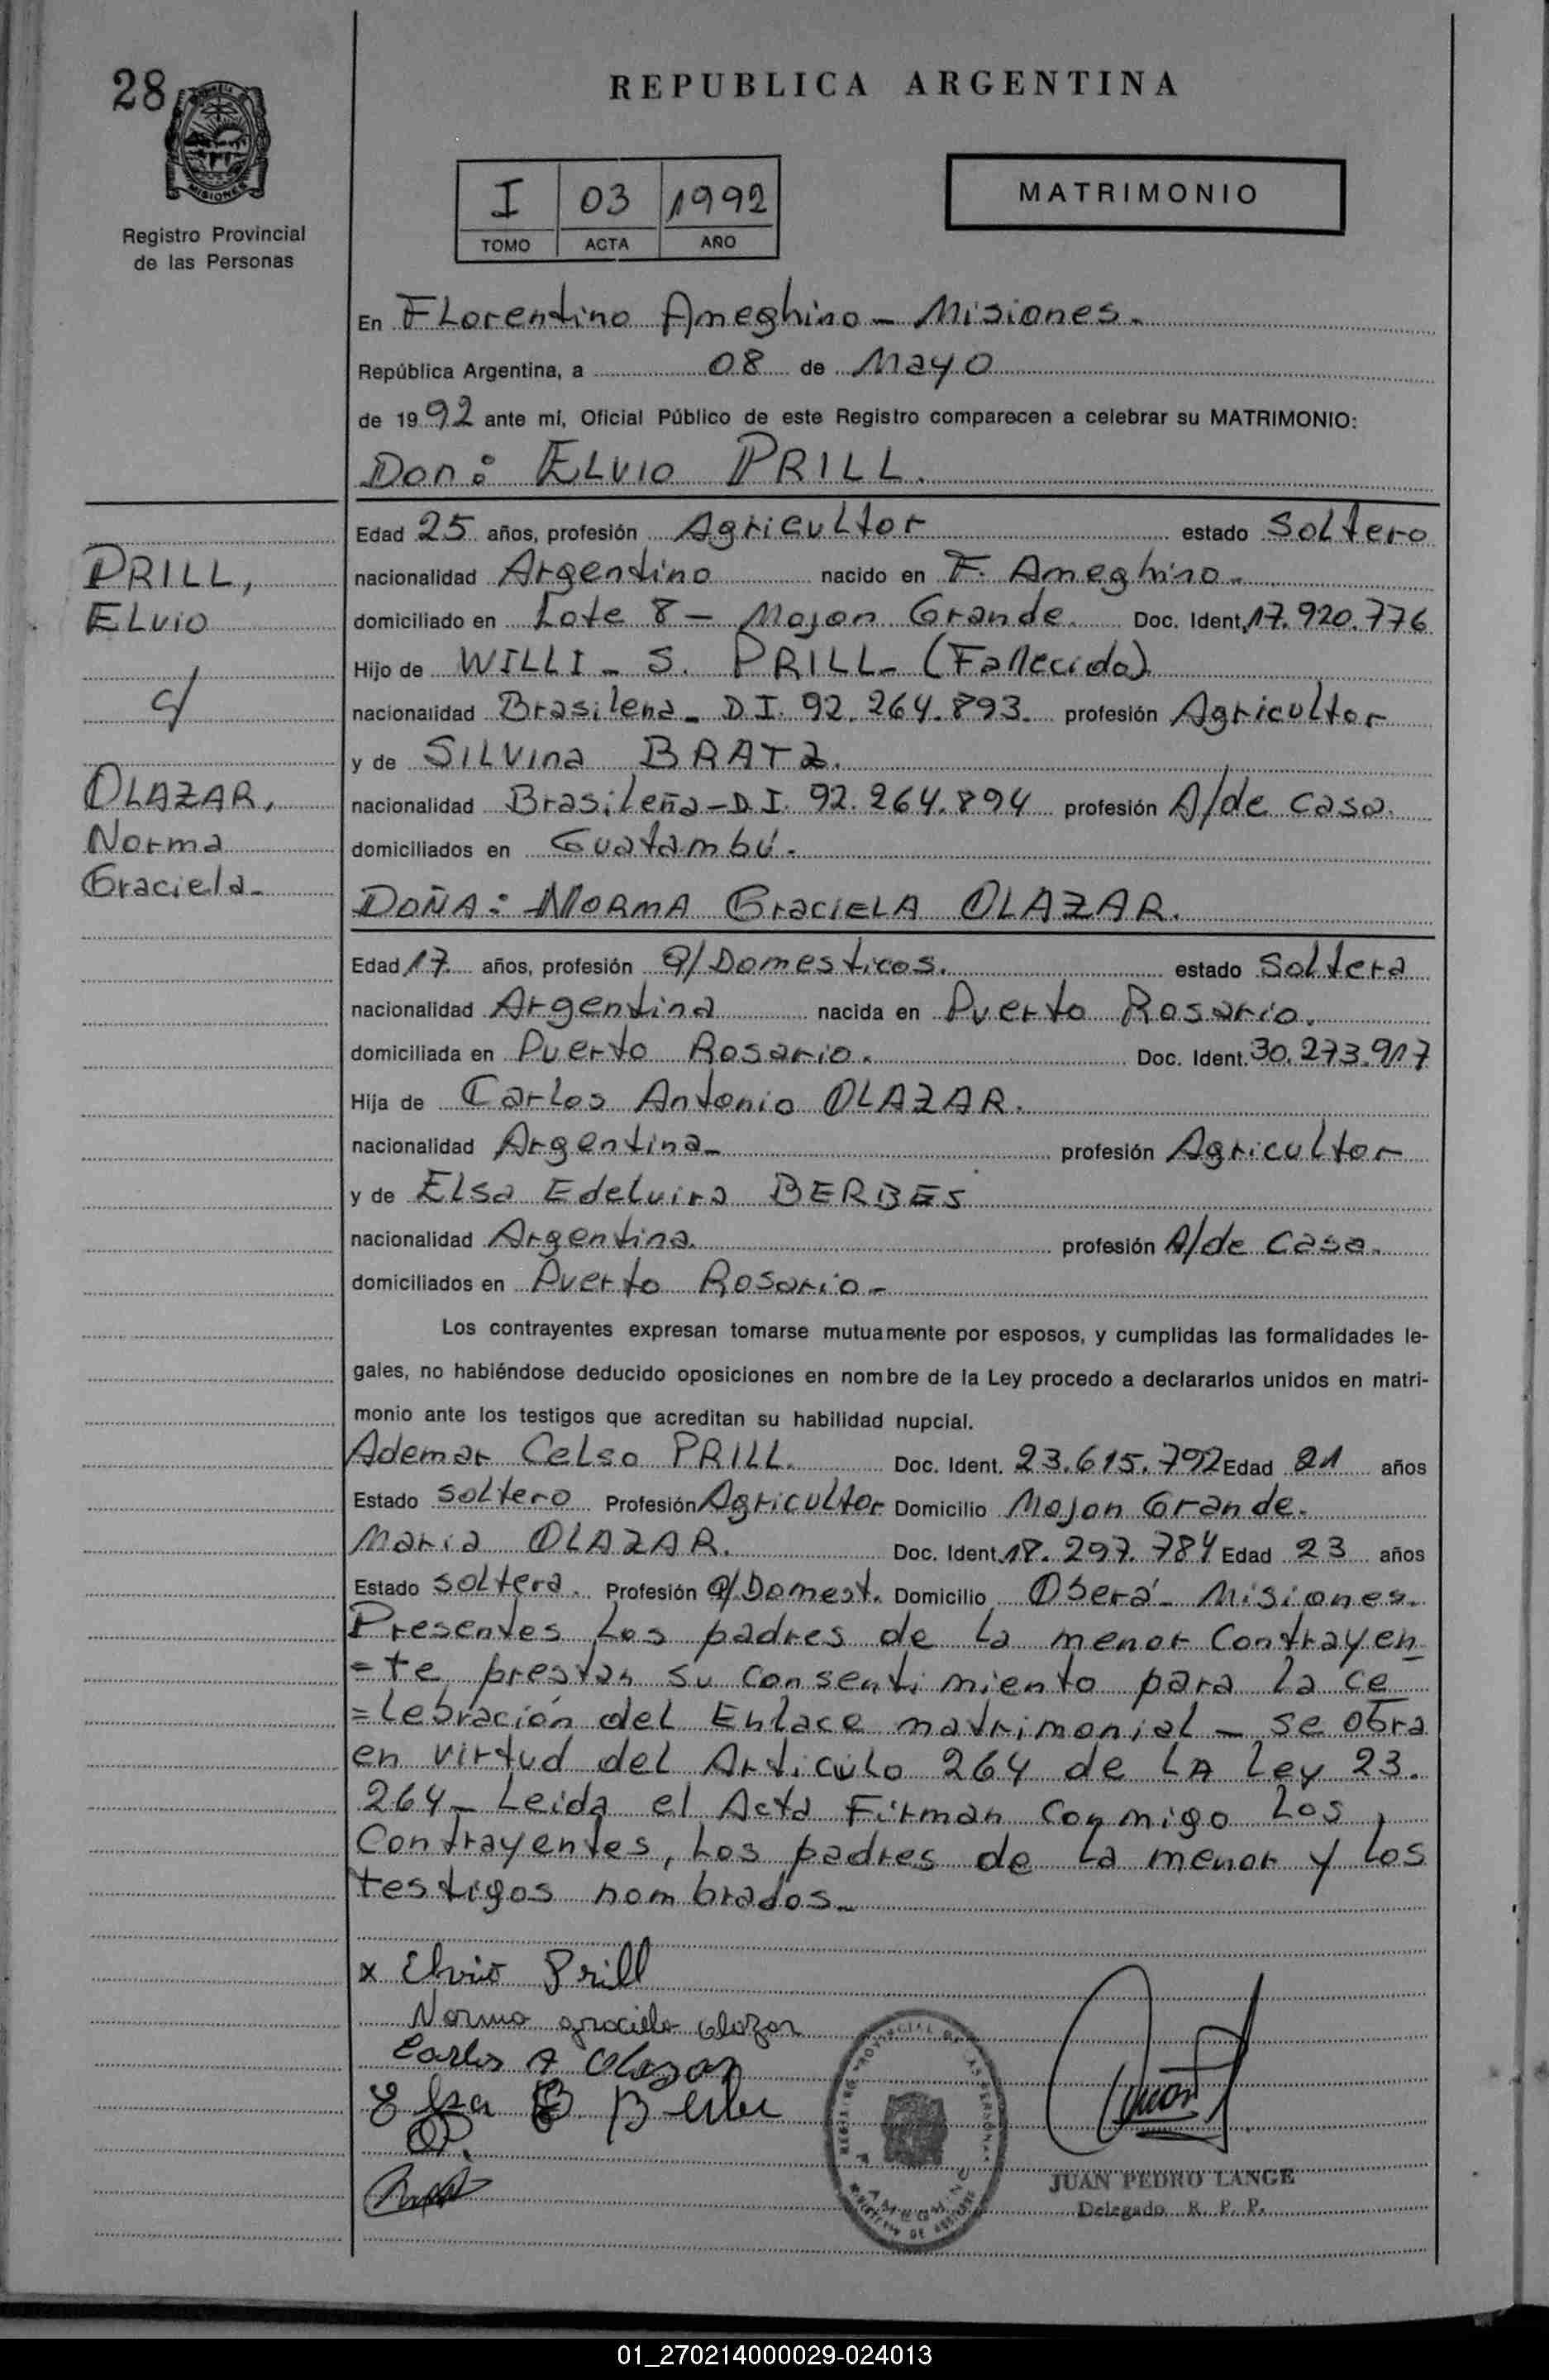 28
REPUBLICA ARGENTINA
MISIONES
Registro Provincial
de las Personas
I 03 1992
TOMO ACTA AÑO
MATRIMONIO
En Florentino Ameghino - Misiones.
República Argentina, a 08 de Mayo
de 1992 ante mí, Oficial Público de este Registro comparecen a celebrar su MATRIMONIO:
Don: ELVIO PRILL.
Edad 25 años, profesión Agricultor estado Soltero
PRILL,
nacionalidad Argentino nacido en F. Ameghino.
ELVIO
domiciliado en Lote 8 - Mojon Grande. Doc. Ident. 17.920.776
Hijo de WILLI - S. PRILL - (Fallecido)
c/
nacionalidad Brasilena - D.I. 92.264.893. profesión Agricultor
y de SILVina BRATZ.
OLAZAR,
nacionalidad Brasileña - D.I. 92.264.894 profesión A/de casa.
Norma
domiciliados en Guatambú.
Graciela -
DOÑA: NORMA GracIELA OLAZAR.
Edad 17 años, profesión Q/Domesticos. estado Soltera
nacionalidad Argentina nacida en Puerto Rosario.
domiciliada en Puerto Rosario. Doc. Ident. 30.273.917
Hija de Carlos Antonio OLAZAR.
nacionalidad Argentina - profesión Agricultor
y de Elsa Edelvira BERBES
nacionalidad Argentina. profesión A/de Casa.
domiciliados en Puerto Rosario -
Los contrayentes expresan tomarse mutuamente por esposos, y cumplidas las formalidades le-
gales, no habiéndose deducido oposiciones en nombre de la Ley procedo a declararlos unidos en matri-
monio ante los testigos que acreditan su habilidad nupcial.
Ademar Celso PRILL. Doc. Ident. 23.615.792 Edad 21 años
Estado soltero Profesión Agricultor Domicilio Mojon Grande.
Maria OLAZAR. Doc. Ident. 18.297.784 Edad 23 años
Estado soltera. Profesión Q/Domest. Domicilio Oberá - Misiones.
Presentes Los padres de la menor Contrayen
=te prestan su consentimiento para la ce
=lebración del Enlace matrimonial - se obra
en virtud del Articulo 264 de LA Ley 23.
264 - Leida el Acta Firman conmigo Los
Contrayentes, Los padres de La menor y Los
testigos nombrados -
x Elvio Prill
Norma graciela olazar
Carlos A Olazar
Elsa E Berbe
JUAN PEDRO LANGE
Delegado R. P. P.
01_270214000029-024013